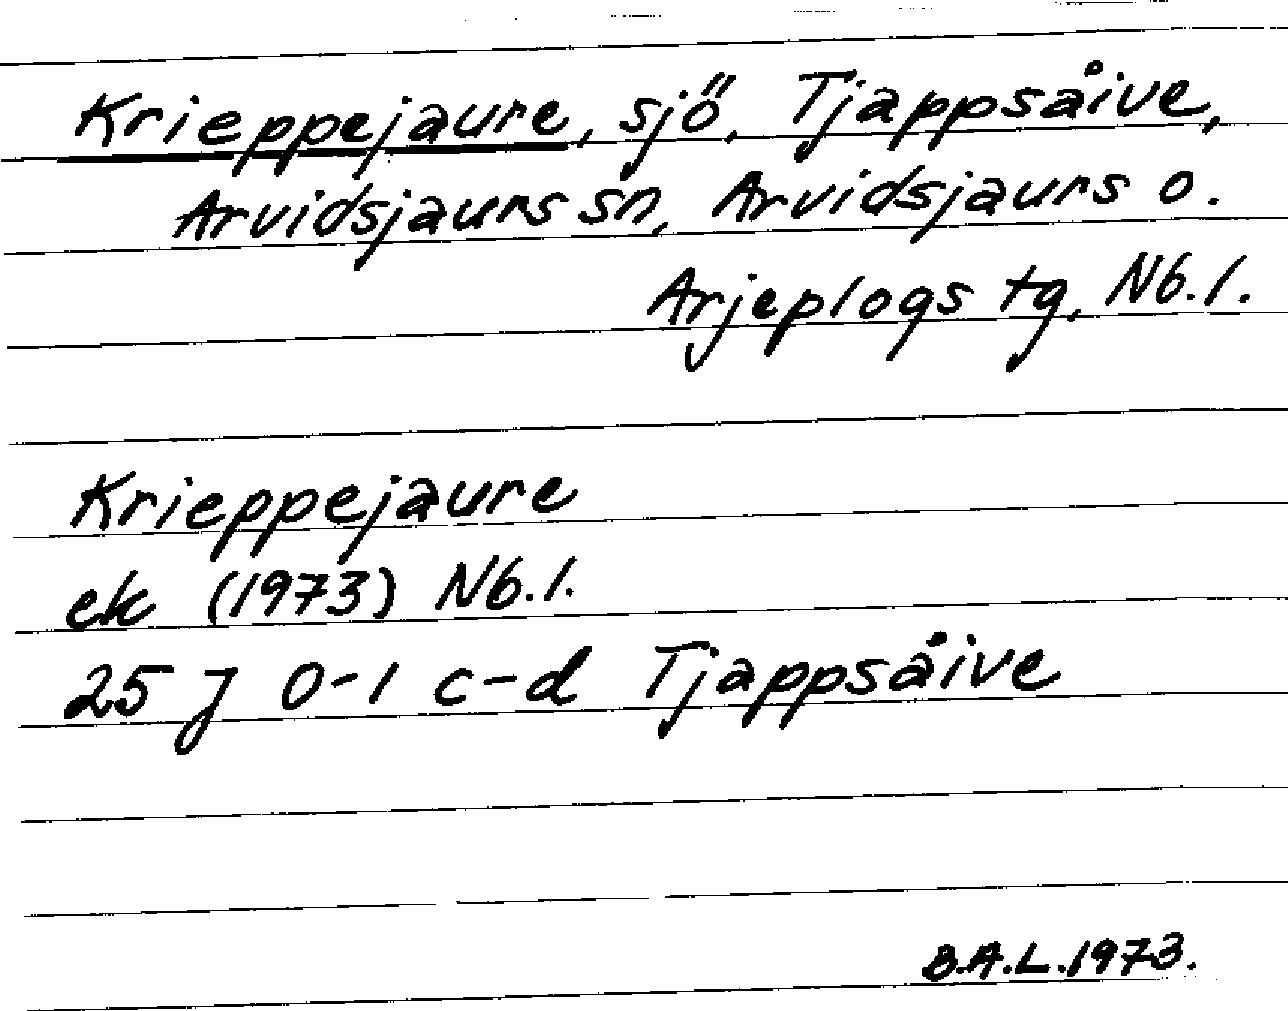 Krieppejaure, sjö, Tjappsåive,
Arvidsjaurs sn, Arvidsjaurs o.
Arjeplogs tg, Nb.l.
Krieppejaure
ek (1973) Nb.l.
25 J 0-1 c-d Tjappsåive
B.A.L. 1973.